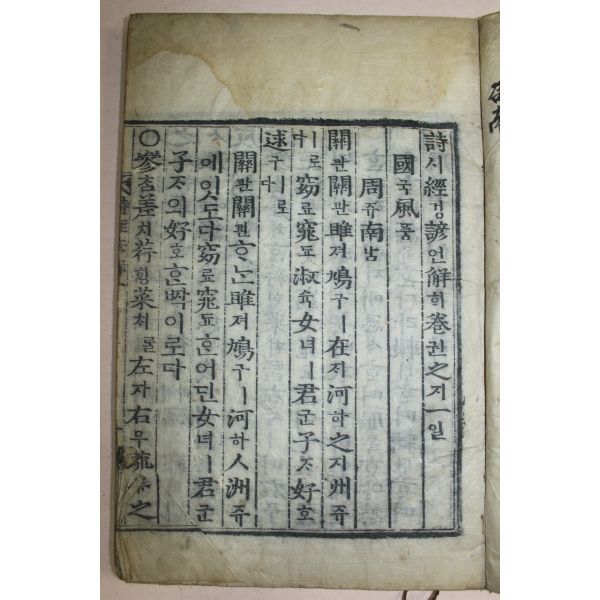 詩시經경諺언解ᄒᆡ卷권之지一일
國국風풍
周쥬南남
關관關관雎져鳩구ㅣ在ᄌᆡ河하之지洲쥬
ㅣ로다窈료窕됴淑슉女녀ㅣ君군子ᄌᆞ好호
逑구ㅣ로다
關관關관ᄒᆞᄂᆞᆫ雎져鳩구ㅣ河하ㅅ洲쥬
에잇도다窈료窕됴ᄒᆞᆫ어딘女녀ㅣ君군
子ᄌᆞ의好호ᄒᆞᆫᄧᅡᆨ이로다
〇參ᄎᆞᆷ差치荇ᄒᆡᆼ菜ᄎᆡ를左자右우流류之